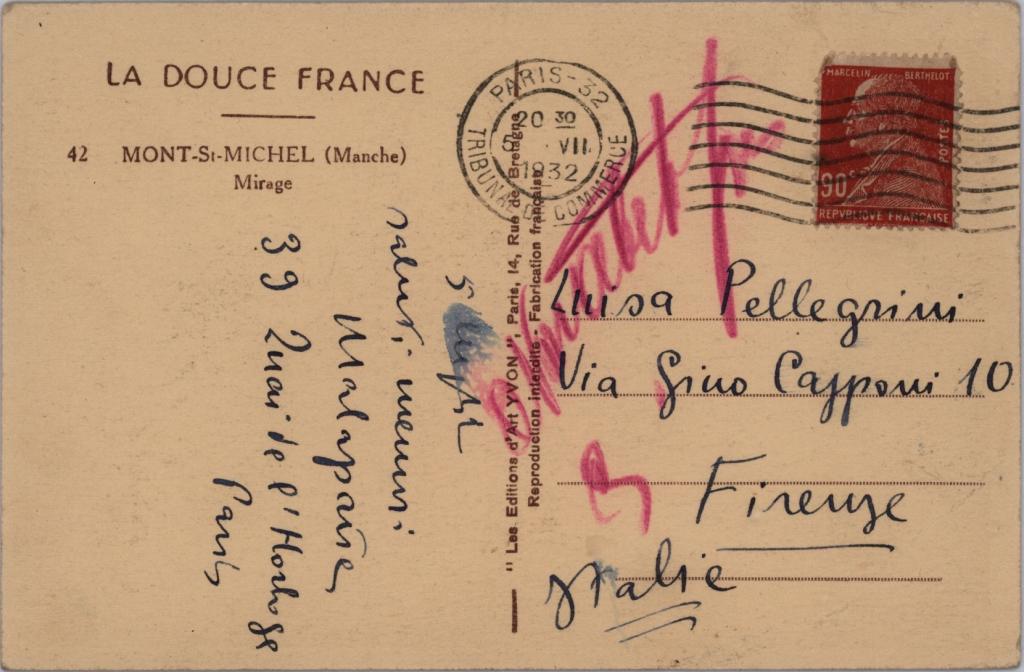 LA DOUCE FRANCE
42 MONT-St-MICHEL (Manche)
Mirage
saluti, memori
Malaparte
39 Quai de l'Horloge
Paris
"Les Editions d'Art YVON", Paris, 14, Rue de Bretagne
Reproduction interdite - Fabrication française
PARIS-32
20 30
VII
1932
TRIBUNAL DE COMMERCE
MARCELIN BERTHELOT
POSTES
90c
REPVBLIQVE FRANÇAISE
Luisa Pellegrini
Via Gino Capponi 10
Firenze
Italie